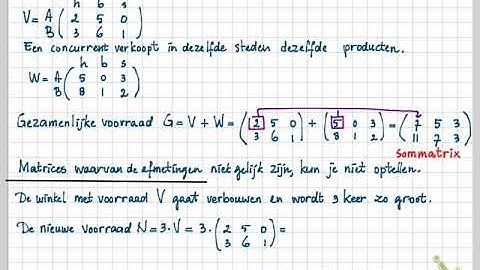 h b s
V = A ( 2 5 0 )
B ( 3 6 1 )
Een concurrent verkoopt in dezelfde steden dezelfde producten.
h b s
W = A ( 5 0 3 )
B ( 8 1 2 )
Gezamenlijke voorraad G = V + W = ( 2 5 0 ) + ( 5 0 3 ) = ( 7 5 3 )
( 3 6 1 ) ( 8 1 2 ) ( 11 7 3 )
Sommatrix
Matrices waarvan de afmetingen niet gelijk zijn, kun je niet optellen.
De winkel met voorraad V gaat verbouwen en wordt 3 keer zo groot.
De nieuwe voorraad N = 3 · V = 3 · ( 2 5 0 ) =
( 3 6 1 )